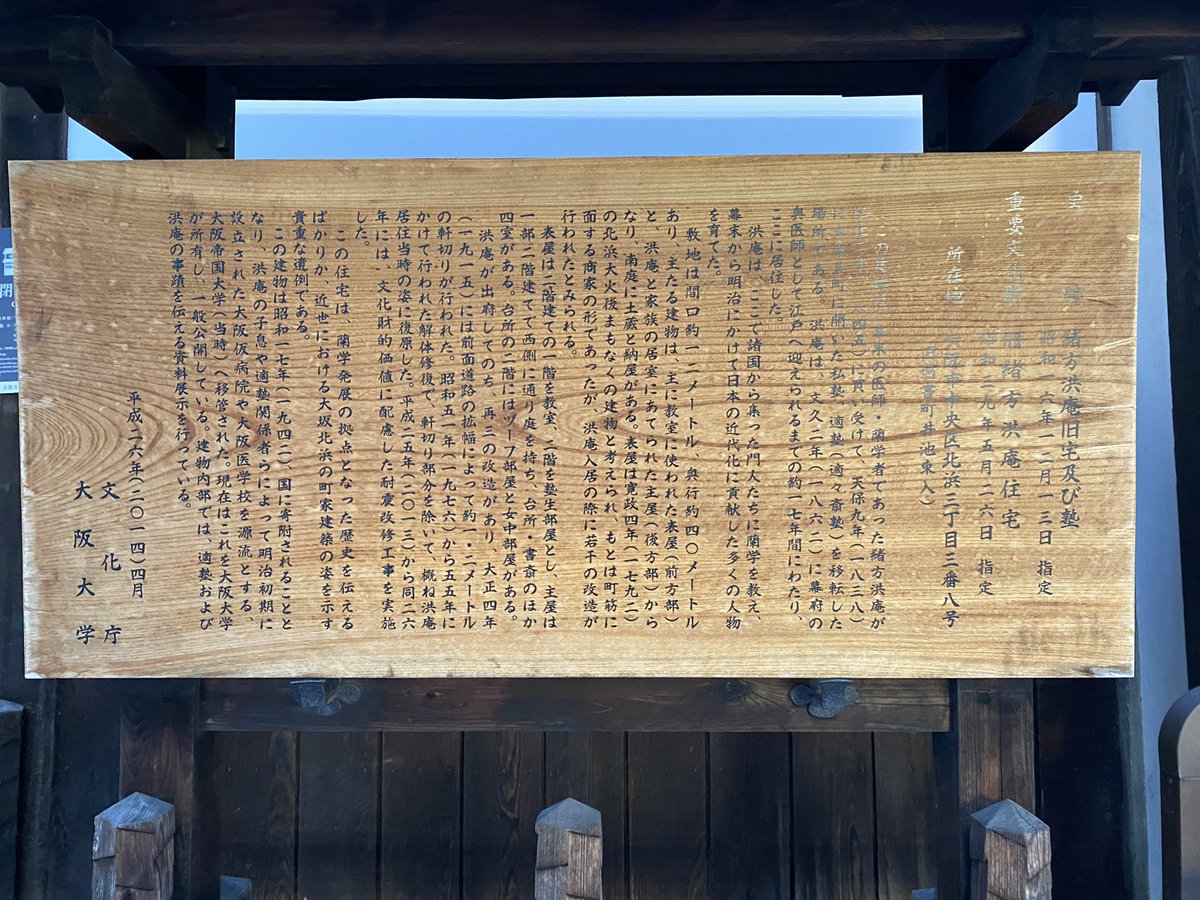 史 跡 緒方洪庵旧宅及び塾
昭和一六年一二月一三日 指定
重要文化財 旧緒方洪庵住宅
昭和三九年五月二六日 指定
所在地 大阪市中央区北浜三丁目三番八号
過書町井池東入)
この の医師・蘭学者であった緒方洪庵が
弘化二年(一八四五)に買い受けて、天保九年(一八三八)
に 町に開いた私塾、適塾(適々斎塾)を移転した
場所である。洪庵は、文久二年(一八六二)に幕府の
奥医師として江戸へ迎えられるまでの約一七年間にわたり、
ここに居住した。
洪庵は、ここで諸国から集った門人たちに蘭学を教え、
幕末から明治にかけて日本の近代化に貢献した多くの人物
を育てた。
敷地は間口約一二メートル、奥行約四〇メートル
あり、主たる建物は、主に教室に使われた表屋(前方部)
と、洪庵と家族の居室にあてられた主屋(後方部)から
なり、南庭に土蔵と納屋がある。表屋は寛政四年(一七九二)
の北浜大火後まもなくの建物と考えられ、もとは町筋に
面する商家の形であったが、洪庵入居の際に若干の改造が
行われたとみられる。
表屋は二階建ての一階を教室、二階を塾生部屋とし、主屋は
一部二階建てで西側に通り庭を持ち、台所・書斎のほか
四室がある。台所の二階にはヅーフ部屋と女中部屋がある。
洪庵が出府してのち、再三の改造があり、大正四年
(一九一五)には前面道路の拡幅によって約一・二メートル
の軒切りが行われた。昭和五一年(一九七六)から五五年に
かけて行われた解体修復で、軒切り部分を除いて、概ね洪庵
居住当時の姿に復原した。平成二五年(二〇一三)から同二六
年には、文化財的価値に配慮した耐震改修工事を実施
した。
この住宅は、蘭学発展の拠点となった歴史を伝える
ばかりか、近世における大坂北浜の町家建築の姿を示す
貴重な遺例である。
この建物は昭和一七年(一九四二)国に寄附されることと
なり、洪庵の子息や適塾関係者らによって明治初期に
設立された大阪仮病院や大阪医学校を源流とする、
大阪帝国大学(当時)へ移管された。現在はこれを大阪大学
が所有し、一般公開している。建物内部では、適塾および
洪庵の事蹟を伝える資料展示を行っている。
平成二六年(二〇一四)四月
文 化 庁
大 阪 大 学